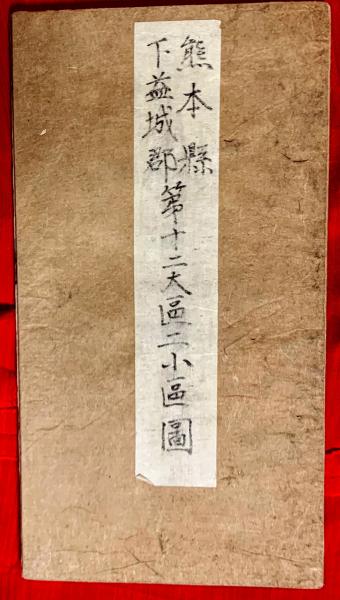 熊本縣
下益城郡第十二大區二小區圖